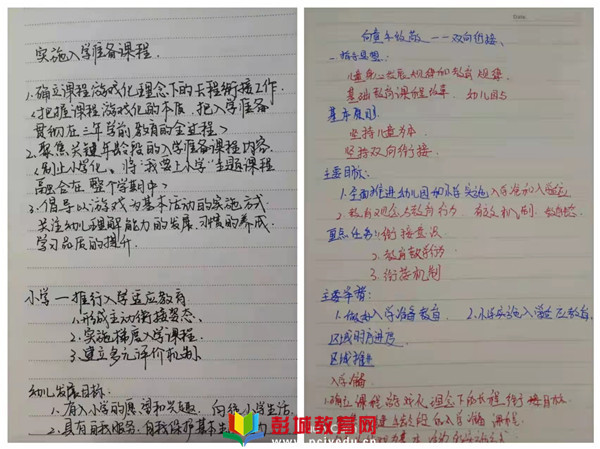 实施入学准备课程.
1.确立课程游戏化理念下的长程衔接工作.
(把握课程游戏化的本质,把入学准备
贯彻在三年学前教育的全过程)
2.聚焦关键年龄段的入学准备课程内容.
(制止小学化、将"我要上小学"主题课程
融合在整个学期中)
3.倡导以游戏为基本活动的实施方式.
关注幼儿理解能力的发展,习惯的养成.
学习品质的提升.
小学一推行入学适应教育
1.形成主动衔接姿态、
2.实施梯度入学课程.
3.建立多元评价机制.
幼儿发展目标:
1.有入小学的愿望和兴趣,向往小学生活.
2.具有自我服务、自我保护基本生
Date.
双向衔接、
一.指导思想:
儿童身心发展规律和教育规律.
基础教育课程改革. 幼儿园与
基本原则:
坚持儿童为本
坚持双向衔接.
主要目标:
1.全面推进幼儿园和小学实施入学准备和入学适应.
2.教育观念与教育行为
重点任务:1.衔接意识
2.教育教学行为
3.衔接机制
主要举措:
1.做好入学准备教育. 2.小学实施入学适应教育.
区域的方
区域推进
入学准备
1.确立课程游戏化理念下的长程衔接
入学准备课程.
彭城教育网
www.pcjyedu.cn